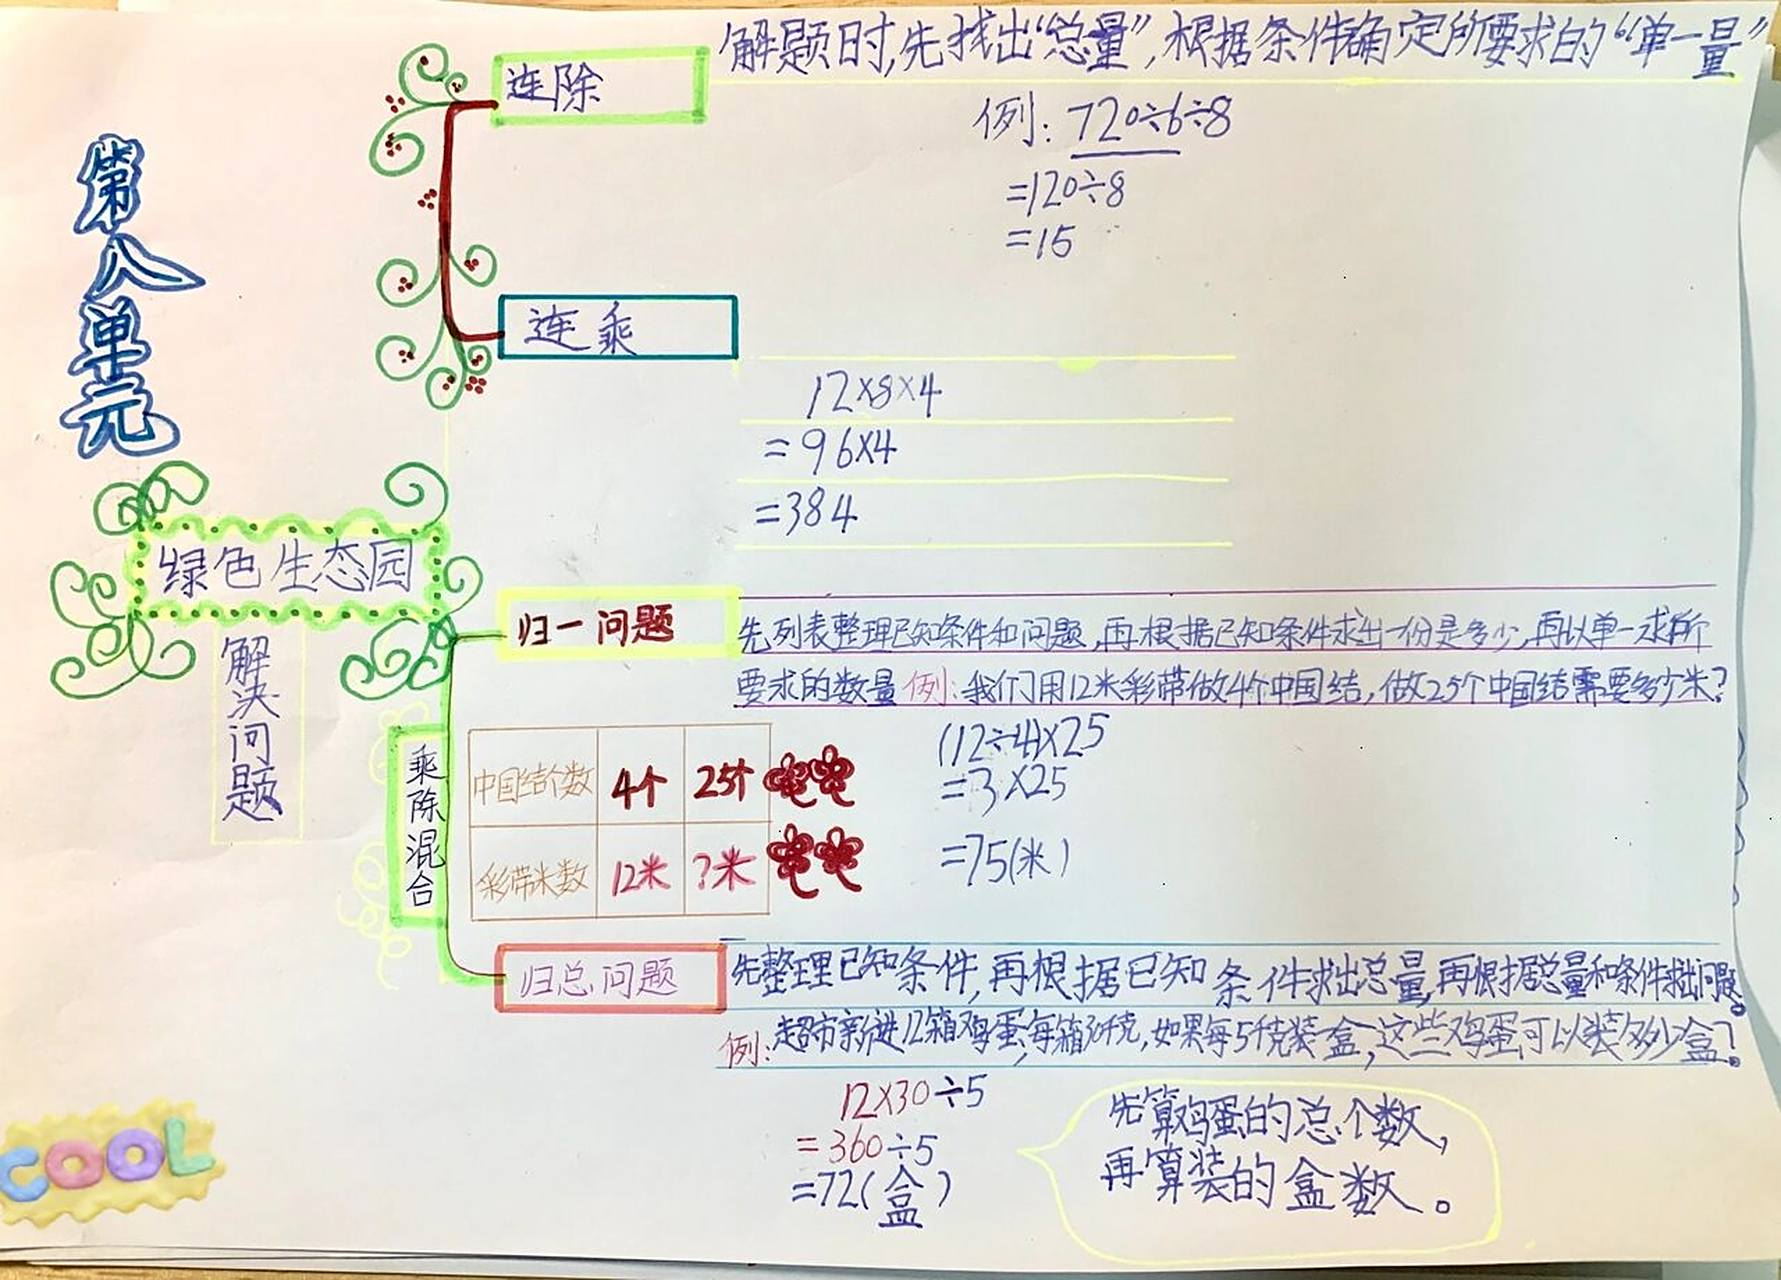 第八单元
绿色生态园
解决问题
连除
解题时,先找出“总量”,根据条件确定所要求的“单一量”
例:720÷6÷8
=120÷8
=15
连乘
12×8×4
=96×4
=384
乘除混合
归一问题
先列表整理已知条件和问题,再根据已知条件求出一份是多少,再以单一求所
要求的数量 例:我们用12米彩带做4个中国结,做25个中国结需要多少米?
中国结个数 4个 25个
彩带米数 12米 ?米
(12÷4)×25
=3×25
=75(米)
归总问题
先整理已知条件,再根据已知条件求出总量,再根据总量和条件求出问题。
例:超市新进12箱鸡蛋,每箱30千克,如果每5千克装一盒,这些鸡蛋可以装多少盒?
12×30÷5
=360÷5
=72(盒)
先算鸡蛋的总个数,
再算装的盒数。
COOL